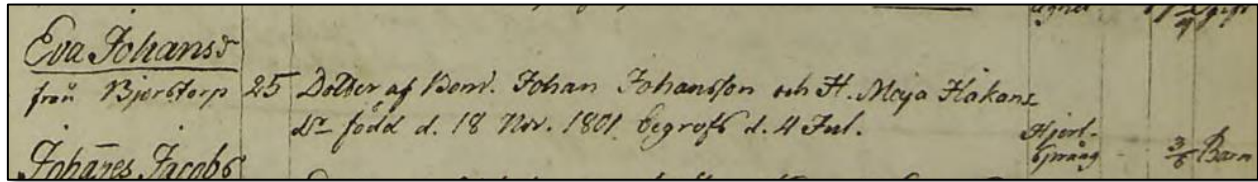 Eva Johansdr
från Bjerstorp 25 Dotter af Bonv. Johan Johansson och H. Maja Håkans
dr född d. 18 Nov. 1801. begrofs d. 4 Jul.
Hjert-
språng 3/6 Barn
Johañes Jacobs